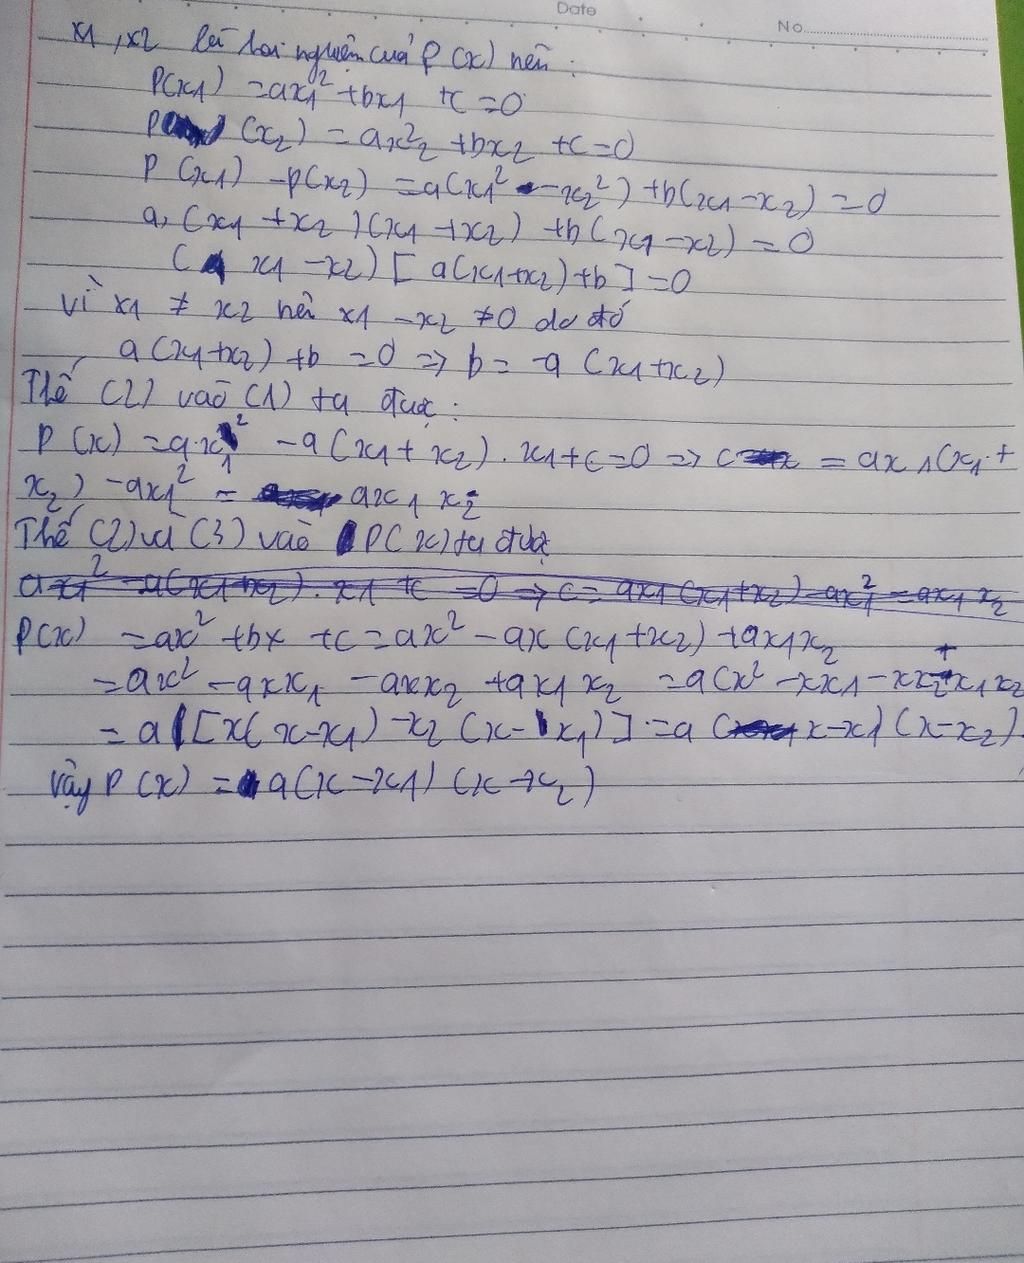 Date
No
x1, x2 là hai nghiệm của P(x) nên :
P(x1) = ax1² + bx1 + c = 0
P (x2) = ax²2 + bx2 + c = 0
P (x1) - P(x2) = a(x1² - x2²) + b(x1 - x2) = 0
a, (x1 + x2)(x1 + x2) + b(x1 - x2) = 0
( x1 - x2) [ a(x1 + x2) + b ] = 0
vì x1 ≠ x2 nên x1 - x2 ≠ 0 do đó
a (x1 + x2) + b = 0 => b = -a (x1 + x2)
Thế (2) vào (1) ta được :
P (x) = a.x1² - a(x1 + x2) . x1 + c = 0 => c = ax1(x1 +
x2) - ax1² = ax1 x2
Thế (2) và (3) vào P(x) ta được
ax1² - a(x1 + x2) . x1 + c = 0 => c = ax1 (x1 + x2) - ax1² = ax1 x2
P(x) = ax² + bx + c = ax² - ax (x1 + x2) + ax1x2
= ax² - axx1 - axx2 + ax1 x2 = a(x² - xx1 - xx2 + x1x2
= a [x(x - x1) - x2 (x - x1)] = a ( x - x1) (x - x2)
Vậy P (x) = a(x - x1) (x - x2)